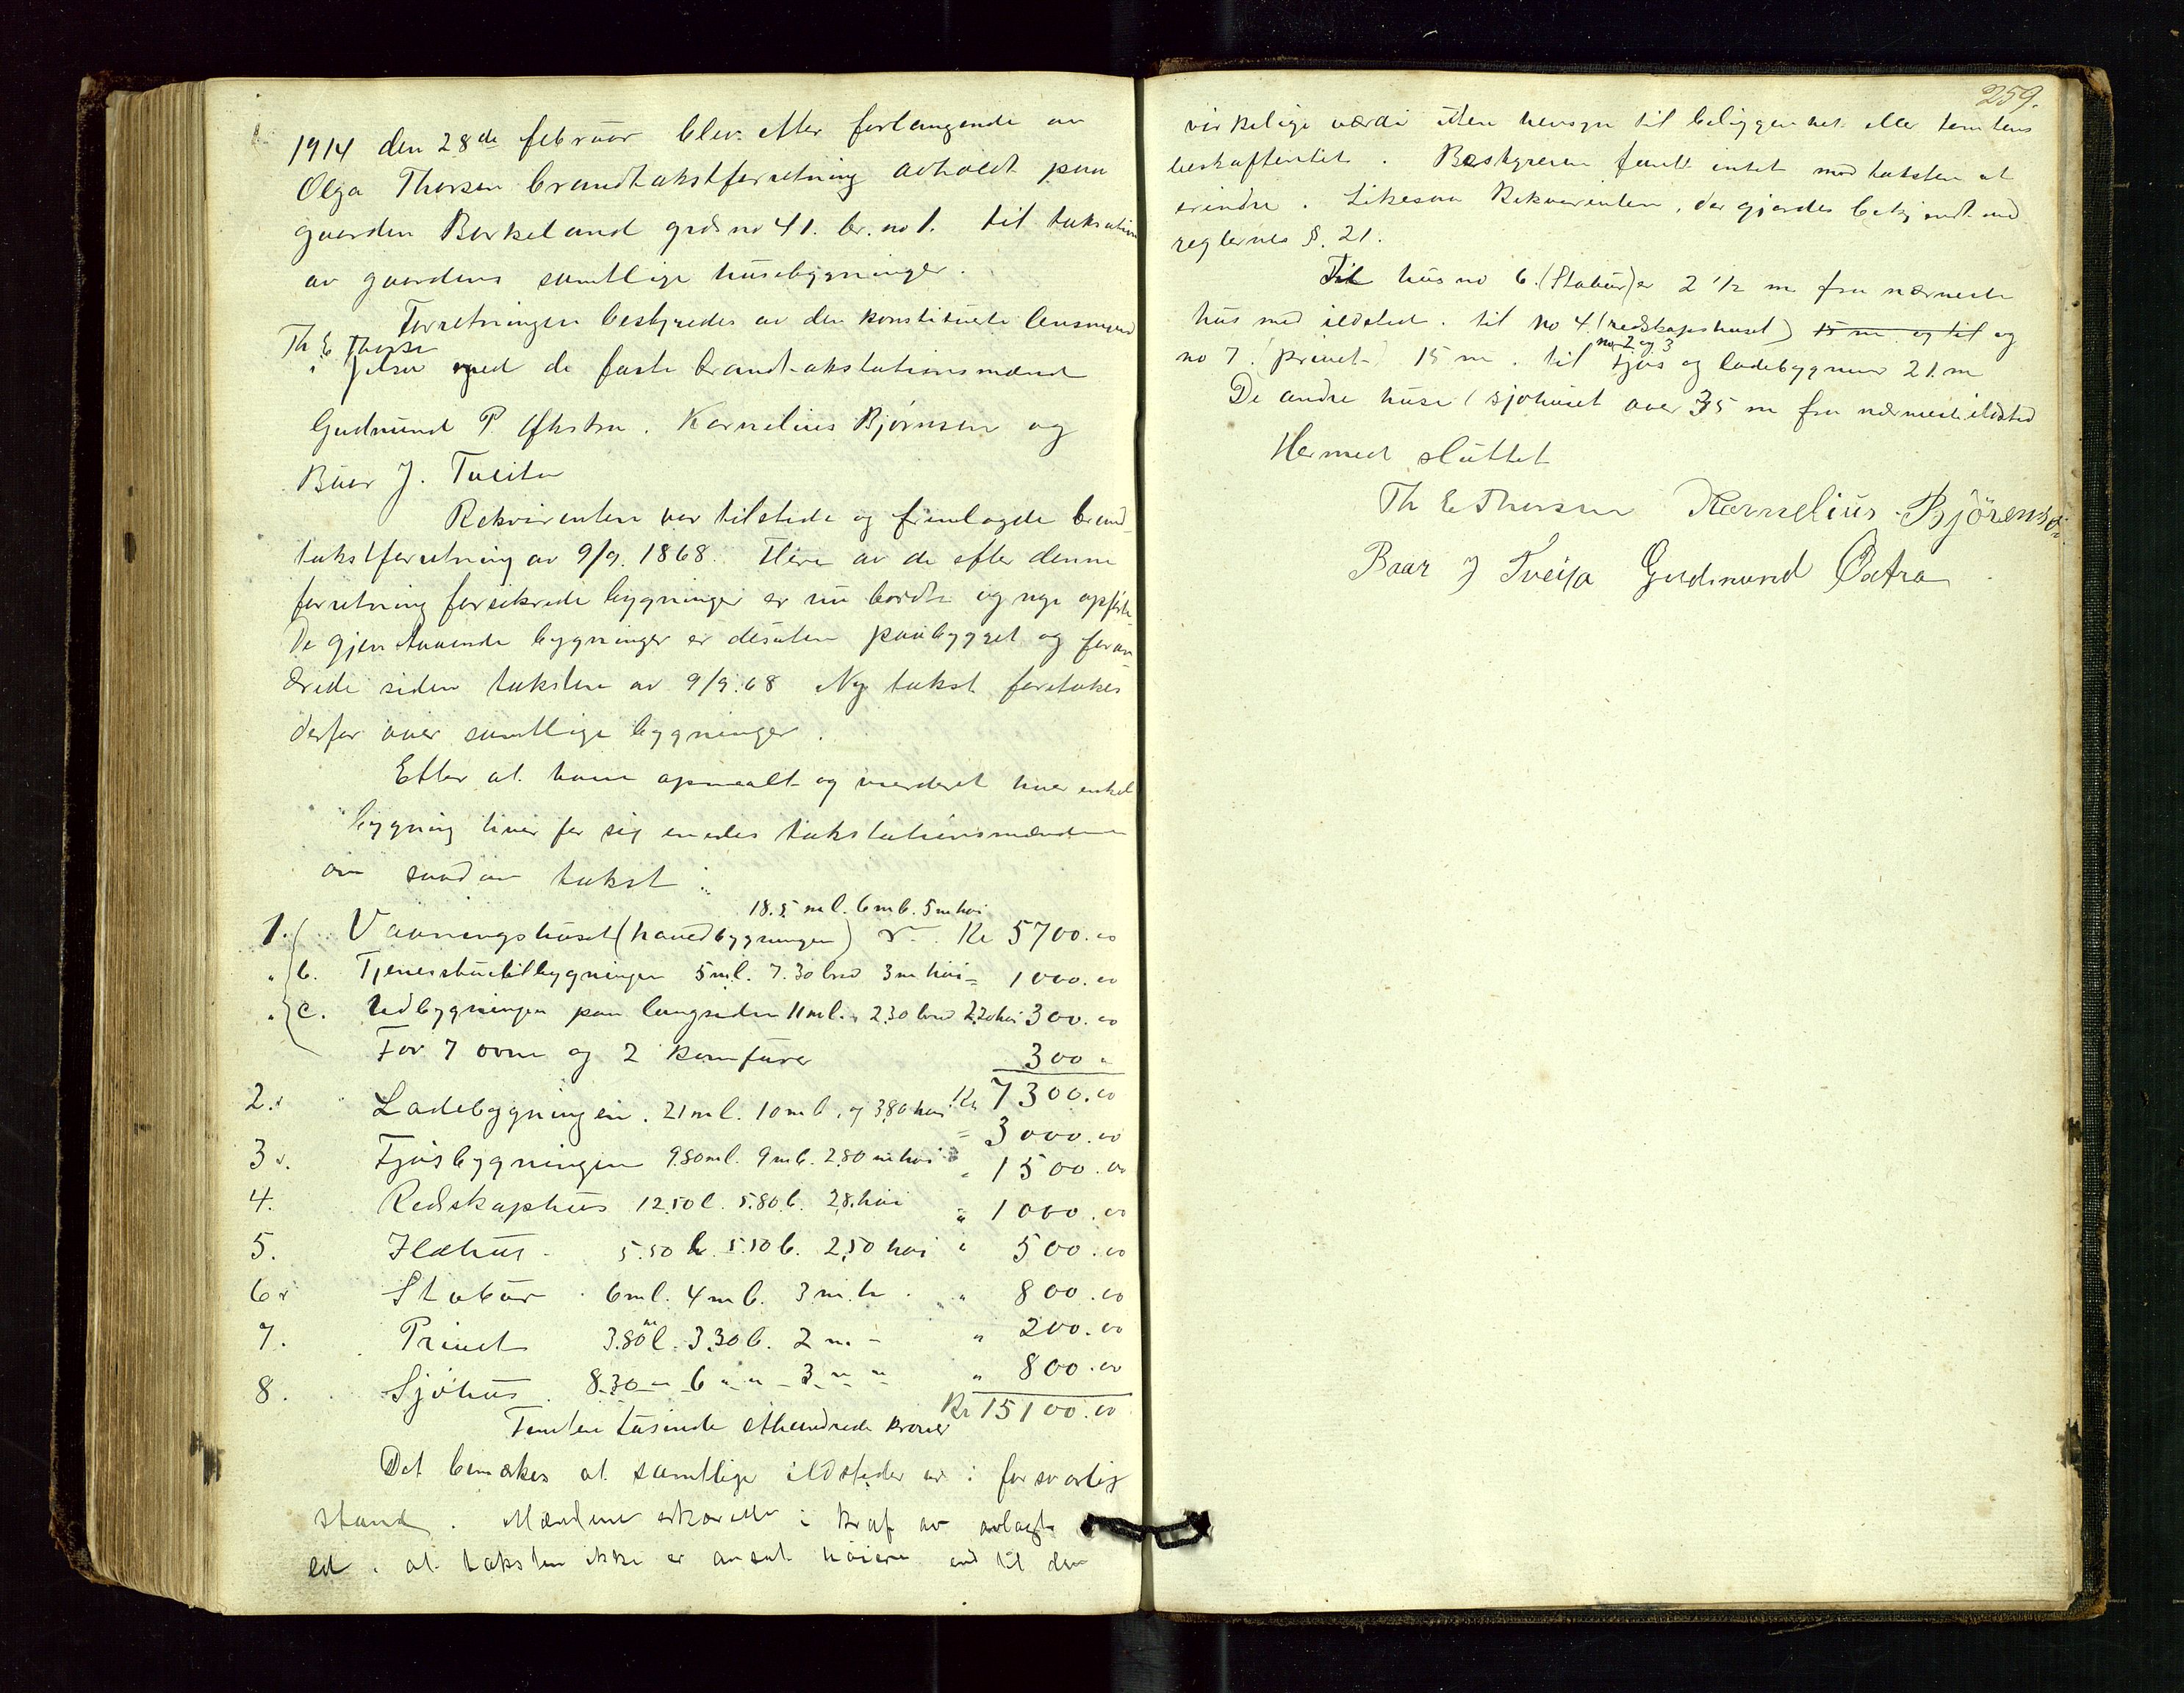 1914 den 28de februar blev efter forlangende av
Olga Thorsen brandtakstforretning avholdt paa
gaarden Barkeland grds no 41. br. no 1. til taksation
av gaardens samtlige husebygninger.
Forretningen bestyredes av den konstituerte lensmand
Th E Thorsen
i Jelsa med de faste brandtakstationsmænd
Gudmund P. Østra. Kornelius Bjørnsen og
Baar J. Tveita
Rekvirenten var tilstede og fremlagde brand
takstforretning av 9/9. 1868. Flere av de efter denne
forretning forsikrede bygninger er nu borte og nye opført
De gjenstaaende bygninger er desuten paabygget og foran-
drede siden taksten av 9/9.68 Ny takst foretakes
derfor over samtlige bygninger.
Efter at have opmaalt og vurderet hver enkelt
bygning hver for sig enedes takstationsmændene
om saadan takst:
18.5 m l. 6 m b. 5 m høi
1. Vaaningshuset (hovedbygningen) Kr 5700.00
" b. Tjenerstuetilbygningen 5 m l. 7.30 bred 3 m høi = 1000.00
" c. Udbygningen paa langsiden 11 m l. 2.30 bred 2.20 høi 300.00
For 7 ovne og 2 komfurer 300 "
Kr 7300.00
2. Ladebygningen. 21 m l. 10 m b. og 3.80 høi = 3000.00
3. Fjøsbygningen 9.80 m l. 9 m b. 2.80 m høi " 1500.00
4. Redskaphus 12.50 l. 5.80 b. 2.8. høi " 1000.00
5. Ildhus 5.50 l. 5.50 b. 2.50 høi " 500.00
6. Stabur 6 m l. 4 m b. 3 m. h. " 800.00
7. Privet 3.80 m l. 3.30 b. 2 m. - " 200.00
8. Sjøhus 8.30 - " 6 " " 3 " " " 800.00
Kr 15100.00
Femten tusinde ethundrede kroner
Det bemerkes at samtlige ildsteder er i forsvarlig
stand. Mændene erklærede i kraf av avlagt
ed, at taksten ikke er ansat høiere end til den
259.
virkelige værdi uten hensyn til beliggenhet eller tomtens
beskaffenhet. Bestyreren fandt intet mod taksten at
erindre. Likesaa Rekvirenten, der gjordes bekjendt med
reglernes §. 21.
Til hus no 6. (Stabur) er 2 1/2 m fra nærmeste
hus med ildsted. til no 4. (redskapshuset) 15 m. og til og
no 7. (privet) 15 m. til no 2 og 3 Fjøs og ladebygning 21. m
De andre huse (sjøhuset over 35 m fra nærmeste ildsted
Hermed sluttet
Th E Thorsen Kornelius Bjørensen
Baar J Tveita Gudmund Østra